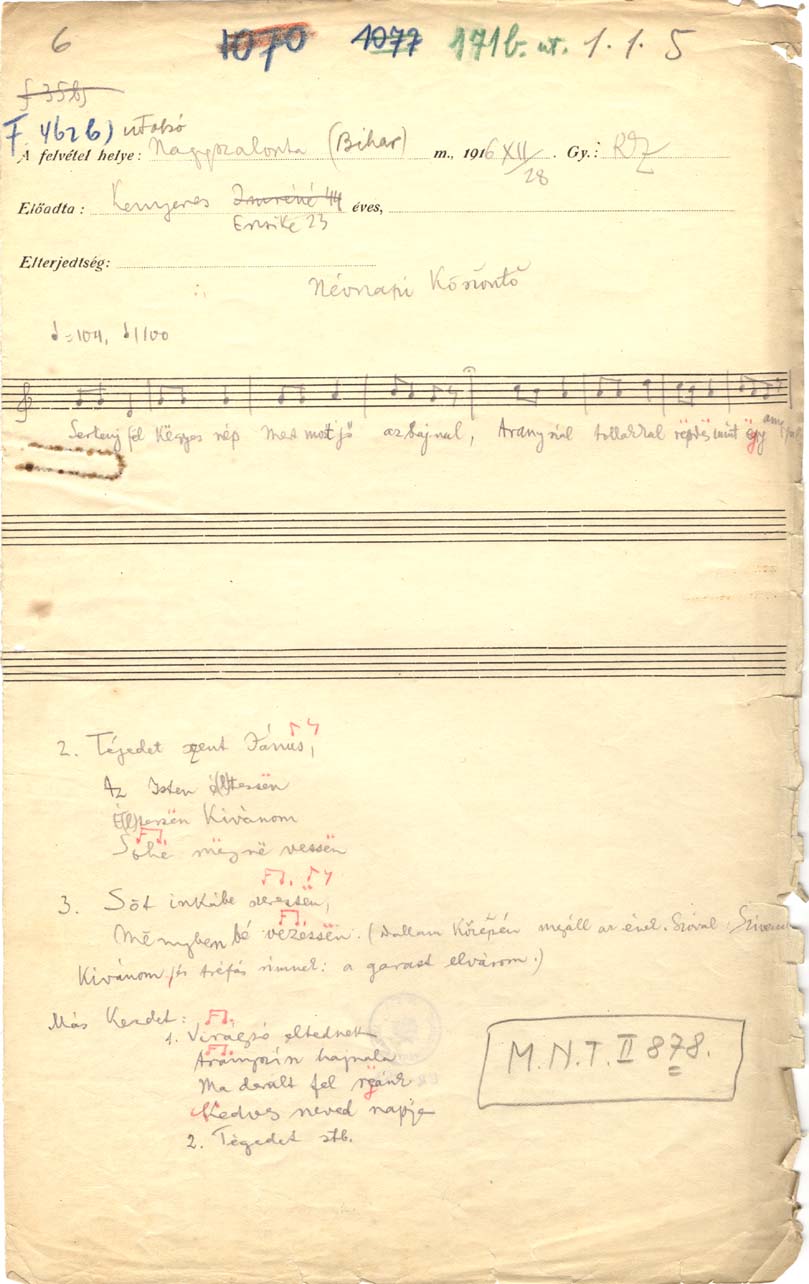 6 1070 1077 171b. ut. 1. 1. 5
f 35b)
F. 462b) utolsó
A felvétel helye: Nagyszalonta (Bihar) m., 1916 XII/28. Gy.: RZ
Előadta: Kenyeres Imréné 44 éves,
Erzsike 23
Elterjedtség:
Névnapi Köszöntő
=104, 100
Serkenj fél Këgyes nép mert most jő az hajnal, Arany szál tollakkal rëpdës mint ëgy
2. Tégedet szent Jánus,
Az Isten é(l)tessën
É(l)tessën Kivánom
Sohé mëgnë vessën
3. Sőt inkább szeressën,
Mënyben bé vezéssën. (Dallam közepén megáll az ének. Szóval:
Kivánom, és tréfás rimnek: a garast elvárom.)
Más Kezdet:
1. Virágzó éltednek
Aranyszin hajnala
Ma derült fel rëánk
Kedves neved napja
2. Tégedet stb.
M.N.T. II 878.